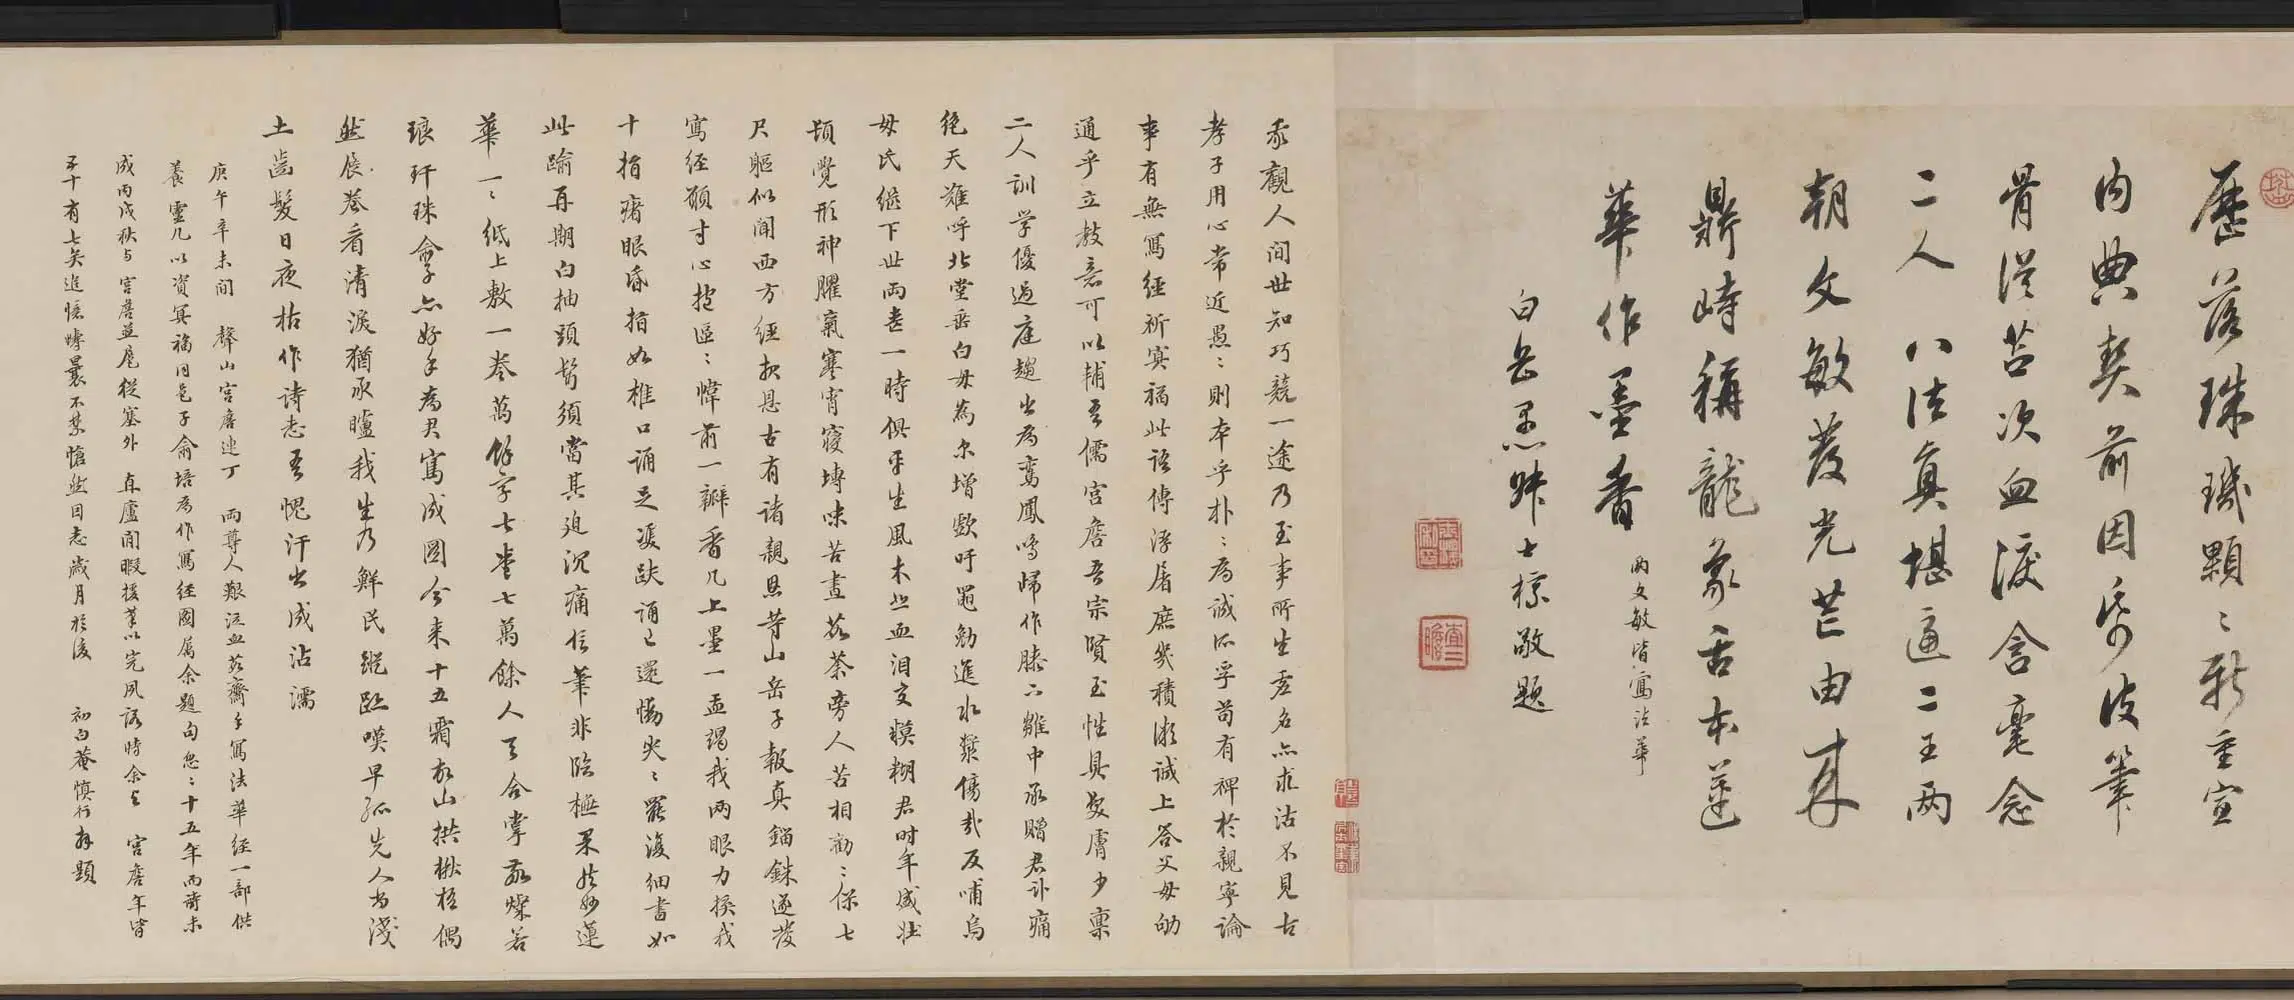 歷落珠璣顆〻新重宣
内典契前因希夷筆
骨從苦次血淚含毫念
二人 八法真堪逼二王兩
朝文敏發光芒由來
鼎峙稱龍象舌本蓮
華作墨香 兩文敏皆寫法華
白岳查昇士標敬題
我觀人間世知巧競一途乃至事所生虛名亦求沽不見古
孝子用心常近愚〻則本乎朴〻為誠所孚苟有裨於親寧論
事有無寫經祈冥福此語傳浮屠庶幾積微誠上答父母劬
通乎立教意可以輔吾儒宮詹吾宗賢至性具髮膚少稟
二人訓学優過庭趨出為鸞鳳鳴歸作膝下雛中承贈君訃痛
絕天難呼北堂垂白母為尓增歎吁黽勉進水漿傷哉反哺烏
母氏繼下世兩喪一時俱平生風木悲血泪交模糊君時年盛壯
頓覺形神臞氣塞宵寢塼味苦晝茹荼旁人苦相勸〻保七
尺軀似聞西方經報恩古有諸親恩等山岳子報真錙銖遂發
寫經願寸心抱區〻幃前一瓣香几上墨一盂竭我兩眼力揆我
十指癯眼昏指如椎口誦足雙趺誦已還慟哭〻罷復細書如
此踰再期白抽頭鬢須當其迫沉痛信筆非臨橅果然妙蓮
華一〻紙上敷一卷萬餘字七卷七萬餘人天合掌敬燦若
琅玕珠俞子亦好手為君寫成圖今來十五霜故山拱楸梧偶
然展卷看清淚猶承臚我生乃鮮民緃跽嘆早孤先人書淺
土齒髮日夜枯作詩志吾愧汗出成沾濡
庚午辛未間 聲山宮詹連丁 兩尊人艱泣血茹齋手寫法華經一部供
養靈几以資冥福同邑子俞培為作寫經圖属余題句怱〻十五年而諾未
成丙戌秋与宮詹並扈從塞外 直廬閒暇援筆以完夙諾時余与 宮詹年皆
五十有七矣追憶疇曩不禁愴然因志歲月於後 初白菴慎行拜題